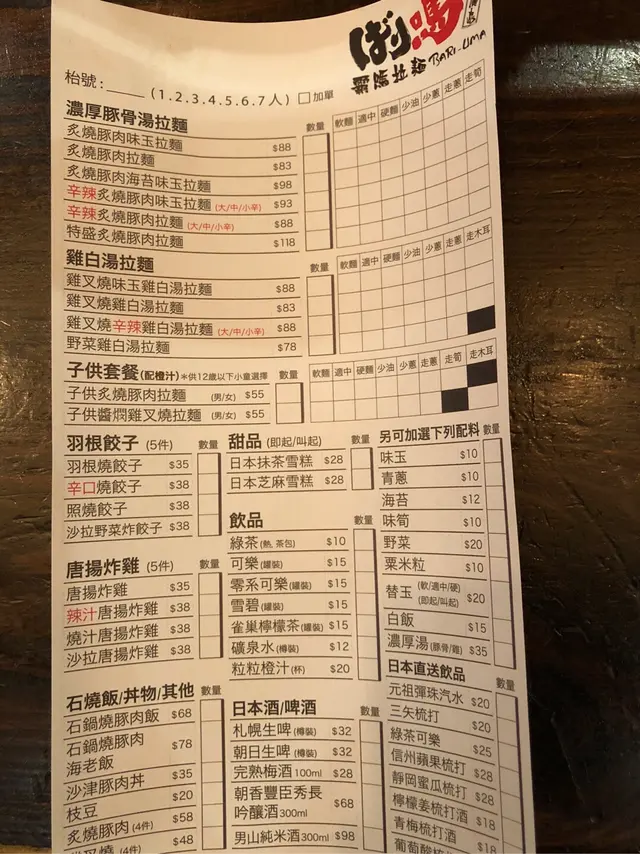 ばり嗎
霸嗎拉麵 BARI-UMA
枱號：____ (1.2.3.4.5.6.7人) □加單
濃厚豚骨湯拉麵 數量 軟麵 適中 硬麵 少油 少蔥 走蔥 走筍
炙燒豚肉味玉拉麵 $88
炙燒豚肉拉麵 $83
炙燒豚肉海苔味玉拉麵 $98
辛辣炙燒豚肉味玉拉麵 (大/中/小辛) $93
辛辣炙燒豚肉拉麵 (大/中/小辛) $88
特盛炙燒豚肉拉麵 $118
雞白湯拉麵 數量 軟麵 適中 硬麵 少油 少蔥 走蔥 走木耳
雞叉燒味玉雞白湯拉麵 $88
雞叉燒雞白湯拉麵 $83
雞叉燒辛辣雞白湯拉麵 (大/中/小辛) $88
野菜雞白湯拉麵 $78
子供套餐(配橙汁) *供12歲以下小童選擇 數量 軟麵 適中 硬麵 少油 少蔥 走蔥 走筍 走木耳
子供炙燒豚肉拉麵 (男/女) $55
子供醬燜雞叉燒拉麵 (男/女) $55
羽根餃子 (5件) 數量
羽根燒餃子 $35
辛口燒餃子 $38
照燒餃子 $38
沙拉野菜炸餃子 $38
唐揚炸雞 (5件) 數量
唐揚炸雞 $35
辣汁唐揚炸雞 $38
燒汁唐揚炸雞 $38
沙拉唐揚炸雞 $38
石燒飯/丼物/其他 數量
石鍋燒豚肉飯 $68
石鍋燒豚肉
海老飯 $78
沙津豚肉丼 $35
枝豆 $20
炙燒豚肉 (4件) $58
雞叉燒 (4件) $48
甜品 (即起/叫起) 數量
日本抹茶雪糕 $28
日本芝麻雪糕 $28
飲品 數量
綠茶(熱, 茶包) $10
可樂(罐裝) $15
零系可樂(罐裝) $15
雪碧(罐裝) $15
雀巢檸檬茶(罐裝) $15
礦泉水(樽裝) $12
粒粒橙汁(杯) $20
日本酒/啤酒 數量
札幌生啤 (樽裝) $32
朝日生啤 (樽裝) $32
完熟梅酒 100ml $28
朝香豐臣秀長
吟釀酒 300ml $68
男山純米酒 300ml $98
另可加選下列配料 數量
味玉 $10
青蔥 $10
海苔 $12
味筍 $10
野菜 $20
粟米粒 $10
替玉 (軟/適中/硬) (即起/叫起) $20
白飯 $15
濃厚湯(豚骨/雞) $35
日本直送飲品 數量
元祖彈珠汽水 $20
三矢梳打 $20
綠茶可樂 $25
信州蘋果梳打 $28
靜岡蜜瓜梳打 $28
檸檬姜梳打酒 $18
青梅梳打酒 $18